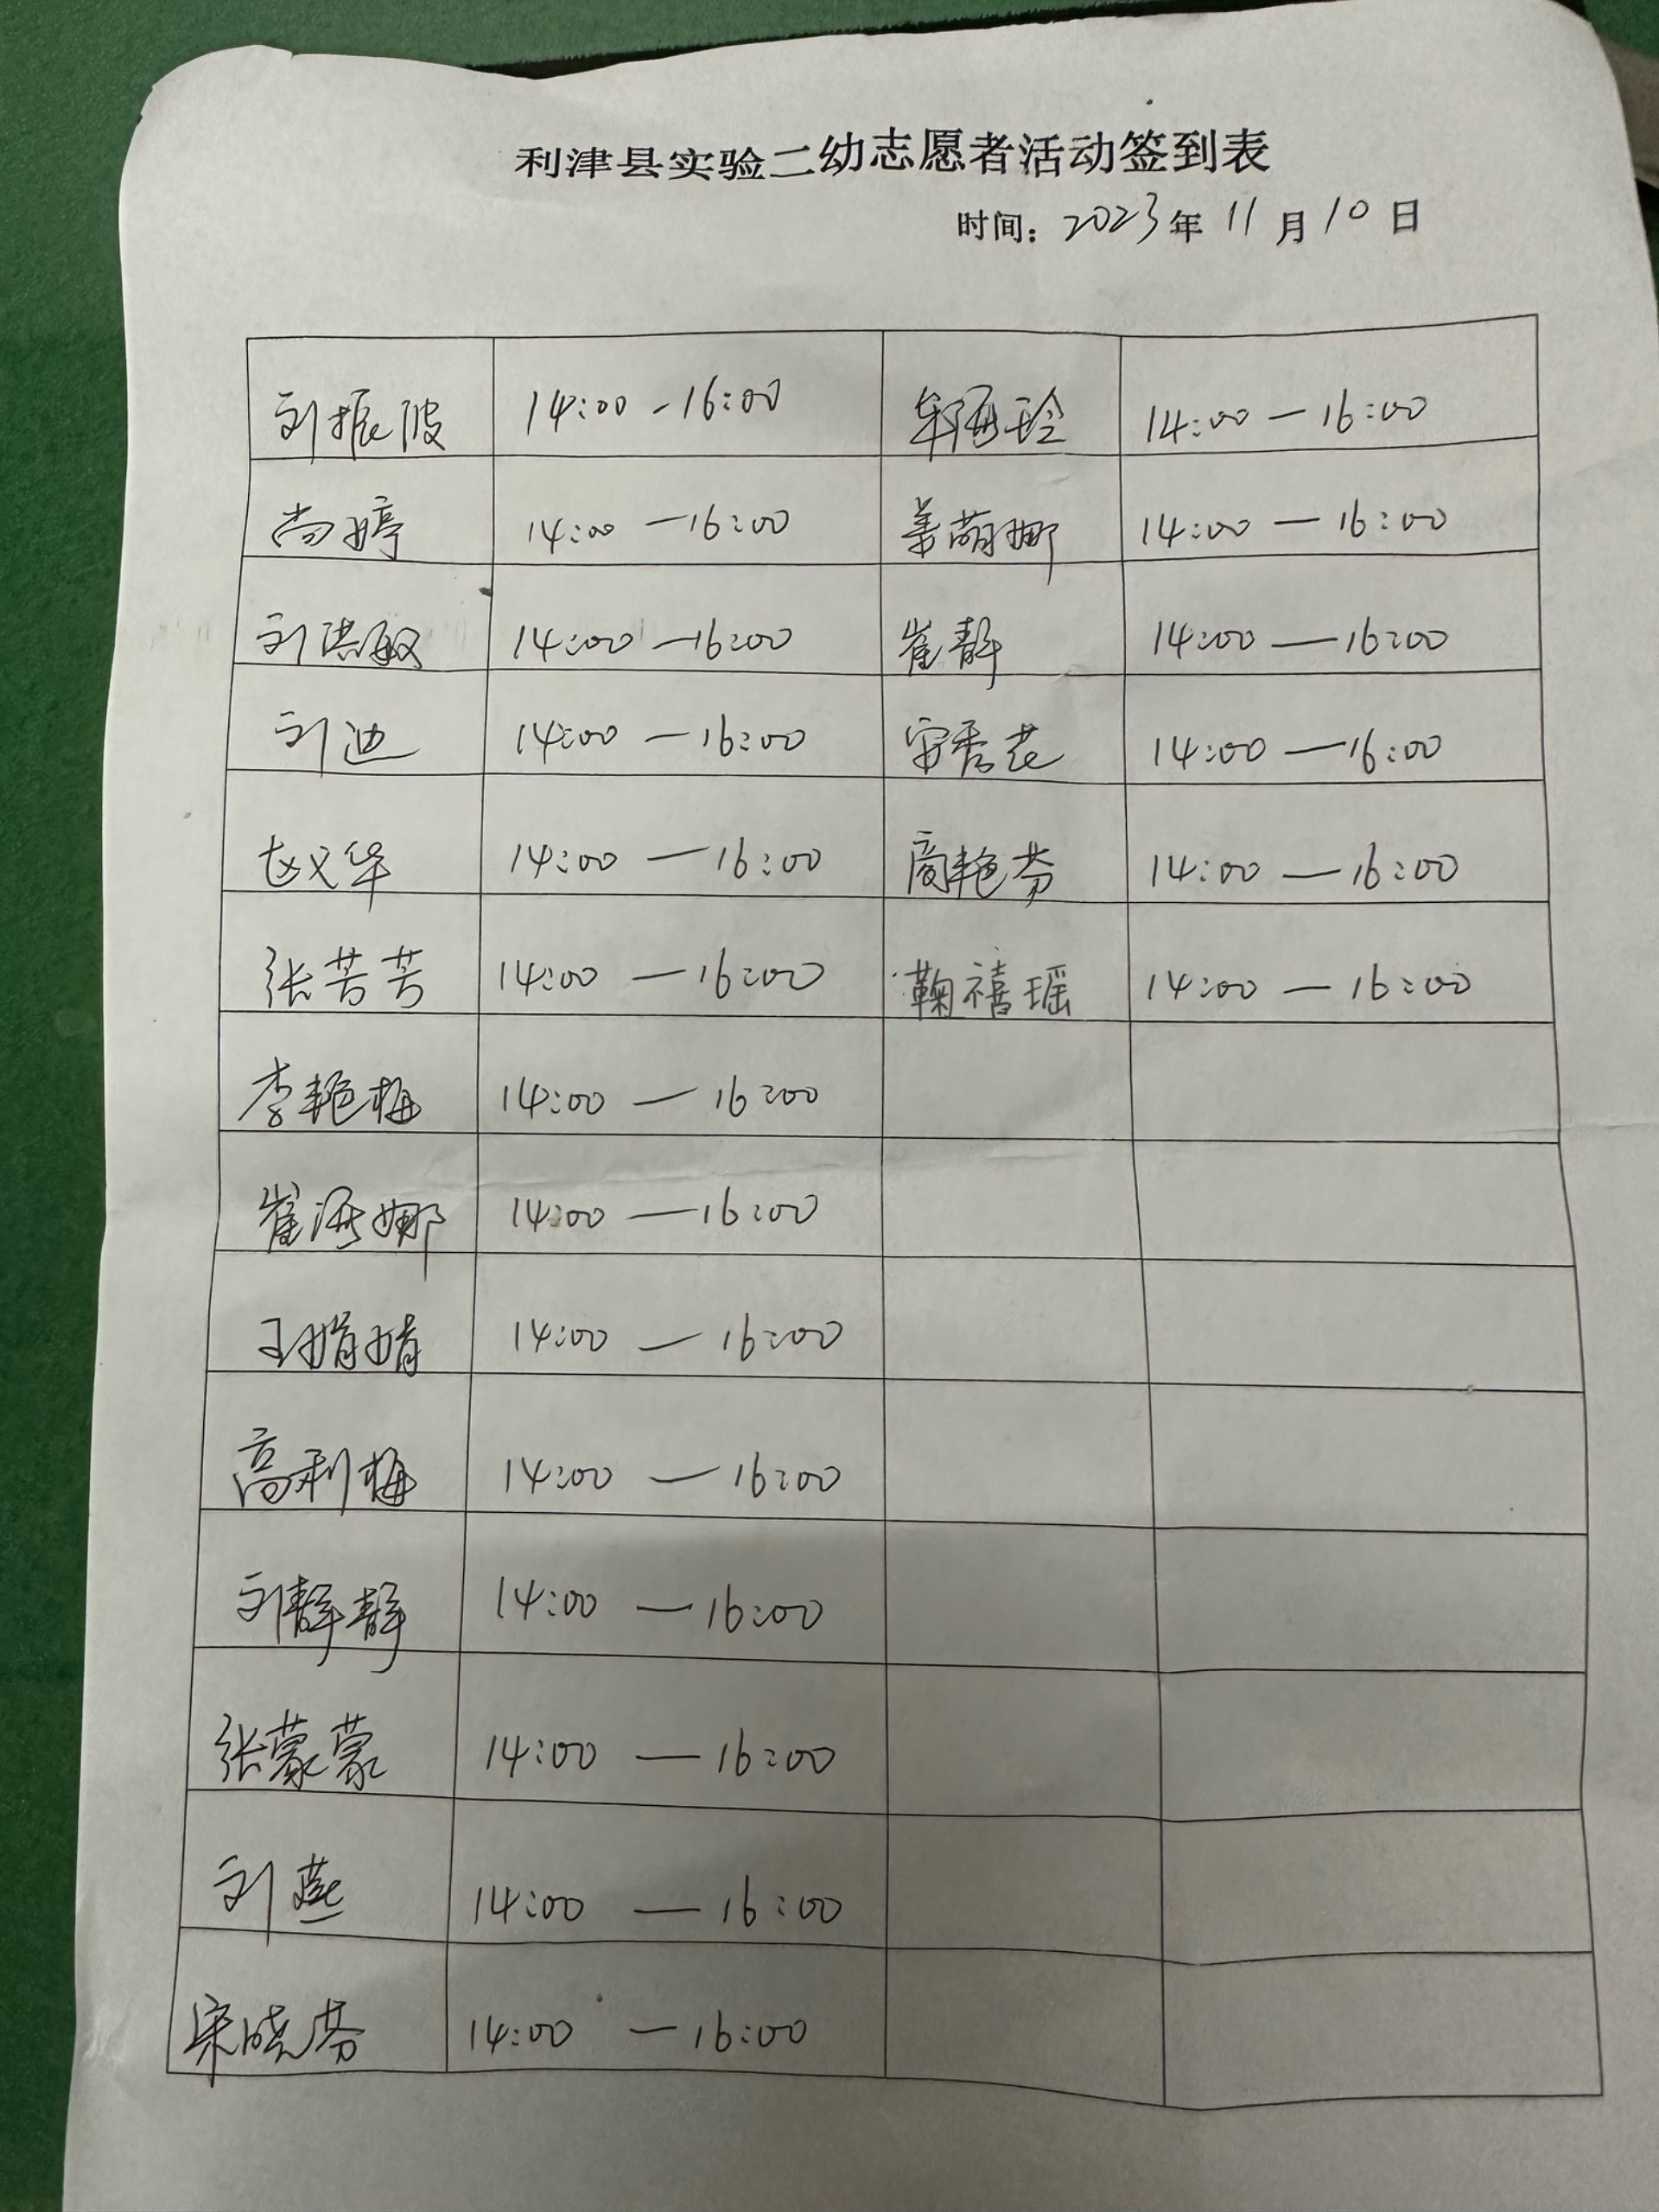 利津县实验二幼志愿者活动签到表
时间：2023年11月10日
刘振波 14:00-16:00 牟海玲 14:00—16:00
尚婷 14:00—16:00 姜萌娜 14:00—16:00
刘洪敏 14:00—16:00 崔静 14:00—16:00
刘迪 14:00—16:00 安秀花 14:00—16:00
赵义华 14:00—16:00 商艳芬 14:00—16:00
张芳芳 14:00—16:00 鞠禧瑶 14:00—16:00
李艳梅 14:00—16:00
崔海娜 14:00—16:00
王娟娟 14:00—16:00
高利梅 14:00—16:00
刘静静 14:00—16:00
张蒙蒙 14:00—16:00
刘燕 14:00—16:00
宋晓芬 14:00—16:00